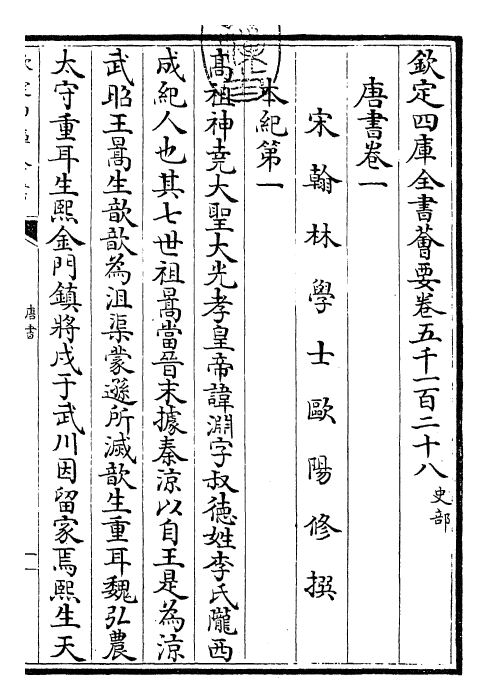 欽定四庫全書薈要卷五千一百二十八 史部
唐書卷一
宋翰林學士歐陽修撰
本紀第一
高祖神堯大聖大光孝皇帝諱淵字叔徳姓李氏隴西
成紀人也其七世祖暠當晉末據秦涼以自王是為涼
武昭王暠生歆歆為沮渠蒙遜所滅歆生重耳魏弘農
太守重耳生熙金門鎮將戍于武川因留家焉熙生天
唐書
一